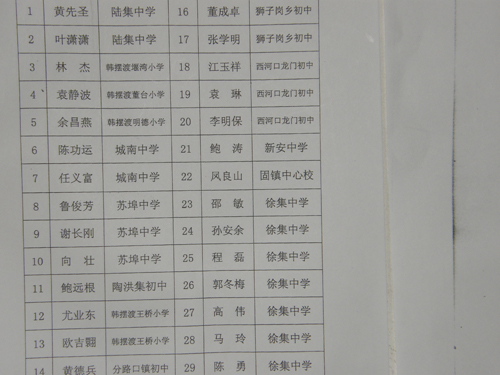 1 黄先圣 陆集中学 16 董成卓 狮子岗乡初中
2 叶潇潇 陆集中学 17 张学明 狮子岗乡初中
3 林 杰 韩摆渡堰湾小学 18 江玉祥 西河口龙门初中
4 袁静波 韩摆渡董台小学 19 袁 琳 西河口龙门初中
5 余昌燕 韩摆渡明德小学 20 李明保 西河口龙门初中
6 陈功运 城南中学 21 鲍 涛 新安中学
7 任义富 城南中学 22 凤良山 固镇中心校
8 鲁俊芳 苏埠中学 23 邵 敏 徐集中学
9 谢长刚 苏埠中学 24 孙安余 徐集中学
10 向 壮 苏埠中学 25 程 磊 徐集中学
11 鲍远根 陶洪集初中 26 郭冬梅 徐集中学
12 尤业东 韩摆渡王桥小学 27 高 伟 徐集中学
13 欧吉 韩摆渡王桥小学 28 马 玲 徐集中学
14 黄德兵 分路口镇初中 29 陈 勇 徐集中学